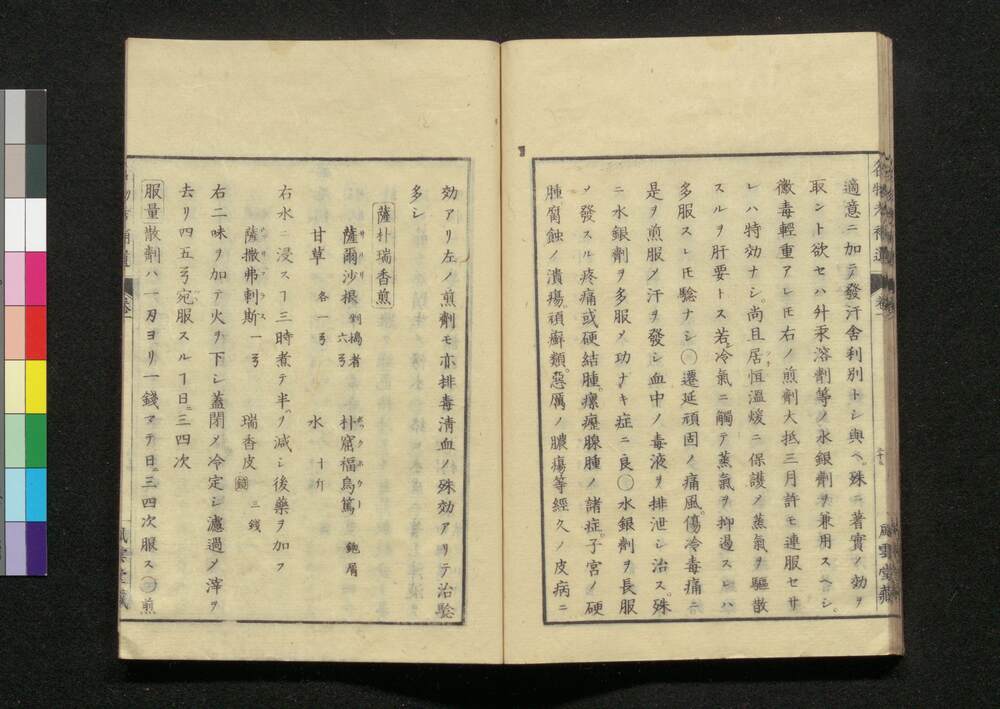 適意ニ加テ發汗舎利別トシ與ヘ。殊ニ著實ノ効ヲ
取ント欲セハ外汞溶劑等ノ水銀劑ヲ兼用スヘシ。
黴毒輕重アレ𪜈右ノ煎劑大抵三月許モ連服セサ
レハ特効ナシ。尚且居恒溫煖ニ保護〆蒸氣ヲ驅散
スルヲ肝要トス若シ冷氣ニ觸テ蒸氣ヲ抑遏スレハ
多服スレ𪜈驗ナシ○遷延頑固ノ痛風。傷冷毒痛ニ
是ヲ煎服〆汗ヲ發シ血中ノ毒液ヲ排泄シ治ス。殊
ニ水銀劑ヲ多服〆功ナキ症ニ良○水銀劑ヲ長服
〆發スル疼痛或硬結腫。瘰癧腺腫ノ諸症。子宮ノ硬
腫。腐蝕ノ潰瘍。頑癬類。惡厲ノ膿瘍等經久ノ皮病ニ
風雲堂藏
効アリ左ノ煎劑モ亦排毒清血ノ殊効アリテ治驗
多シ
薩朴瑞香煎
薩爾沙根 剉搗者 六㐅 朴窟福烏篤 鉋屑
甘草 各一㐅 水 十
右水ニ浸スヿ三時煮テ半ヲ減シ後藥ヲ加フ
薩撒弗剌斯 一㐅 瑞香皮 二錢
右二味ヲ加テ火ヲ下シ蓋閉〆冷定シ濾過〆滓ヲ
去リ四五㐅宛服スルヿ日ニ三四次
服量散劑ハ一刄ヨリ一錢マテ日ニ三四次服ス○煎